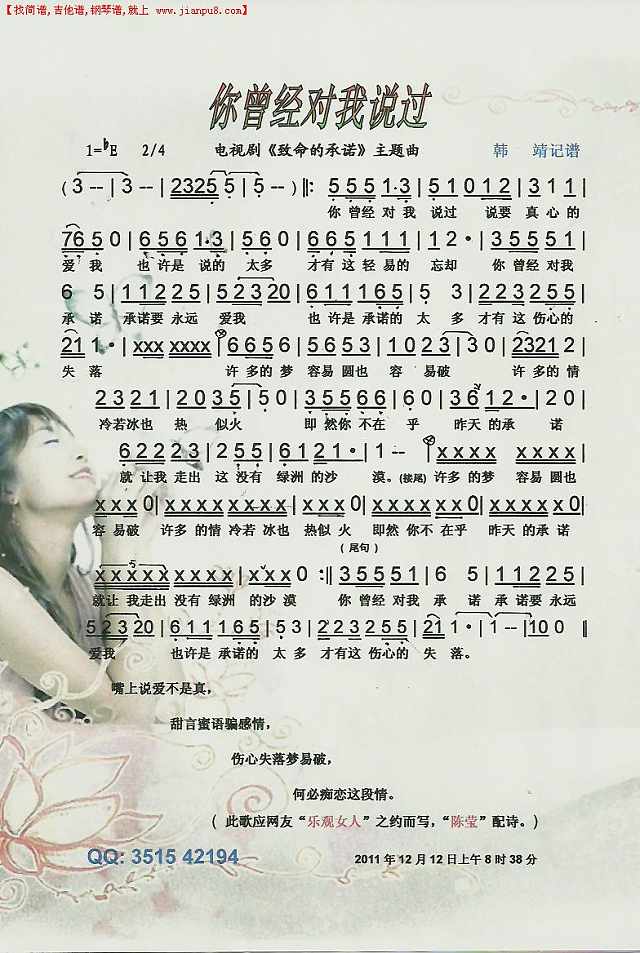 【找简谱,吉他谱,钢琴谱,就上 www.jianpu8.com】
你曾经对我说过
1=♭E 2/4 电视剧《致命的承诺》主题曲 韩 靖记谱
( 3 -- | 3 -- | 2325 5 | 5 -- ) ‖: 5 5 5 1·3 | 5 1 0 1 2 | 3 1 1 |
你 曾经 对 我 说过 说要 真 心 的
76 5 0 | 6 5 6 1·3 | 5 6 0 | 6 6 5 1 1 1 | 1 2 · | 3 5 5 5 1 |
爱 我 也 许是 说的 太多 才有 这 轻 易的 忘却 你 曾经 对我
6 5 | 1 1 2 2 5 | 5 2 3 20 | 6 1 1 1 6 1 | 5 3 | 2 2 3 2 5 5 |
承 诺 承诺要 永远 爱我 也 许是 承诺的 太 多 才有 这 伤心的
21 1 · | xxx xxxx | 6 6 5 6 | 5 6 5 3 5 | 1 0 2 3 | 2 3 2 1 2 |
失 落 许 多的 梦 容易 圆也 容 易破 许 多的 情
2 3 2 1 | 2 0 1 3 | 5 -- | 3 5 5 6 6 | 6 0 | 3 6 1 2 · | 2 0 |
冷若冰也 热 似火 即 然你 不在 乎 昨天的承 诺
6 2 2 2 3 | 2 5 5 | 6 1 2 1 · | 1 -- | x x x x | x x x x |
就 让我 走出 这 没有 绿洲 的沙 漠。(接尾) 许多 的梦 容易 圆也
x x x 0 | x x x x | x x x x | x x x 0 | x x x x | x x x 0 | x x x x |
容 易破 许多 的情 冷若 冰也 热似 火 即然 你不 在乎 昨天 的承诺
( 尾句 )
x x x x x | x x x x | x x x 0 :‖ 3 5 5 5 1 | 6 5 | 1 1 2 2 5 |
就让 我走出 没有 绿洲 的沙 漠 你 曾经 对我 承 诺 承诺要 永远
5 2 3 20 | 6 1 1 1 6 1 | 5 3 | 2 2 3 2 5 5 | 21 1 · | 1 -- | 10 0 ‖
爱我 也许是 承诺的 太 多 才有 这 伤心的 失落。
嘴上说爱不是真，
甜言蜜语骗感情，
伤心失落梦易破，
何必痴恋这段情。
( 此歌应网友“乐观女人”之约而写，“陈莹”配诗。)
QQ: 3515 42194 2011年12月12日上午8时38分